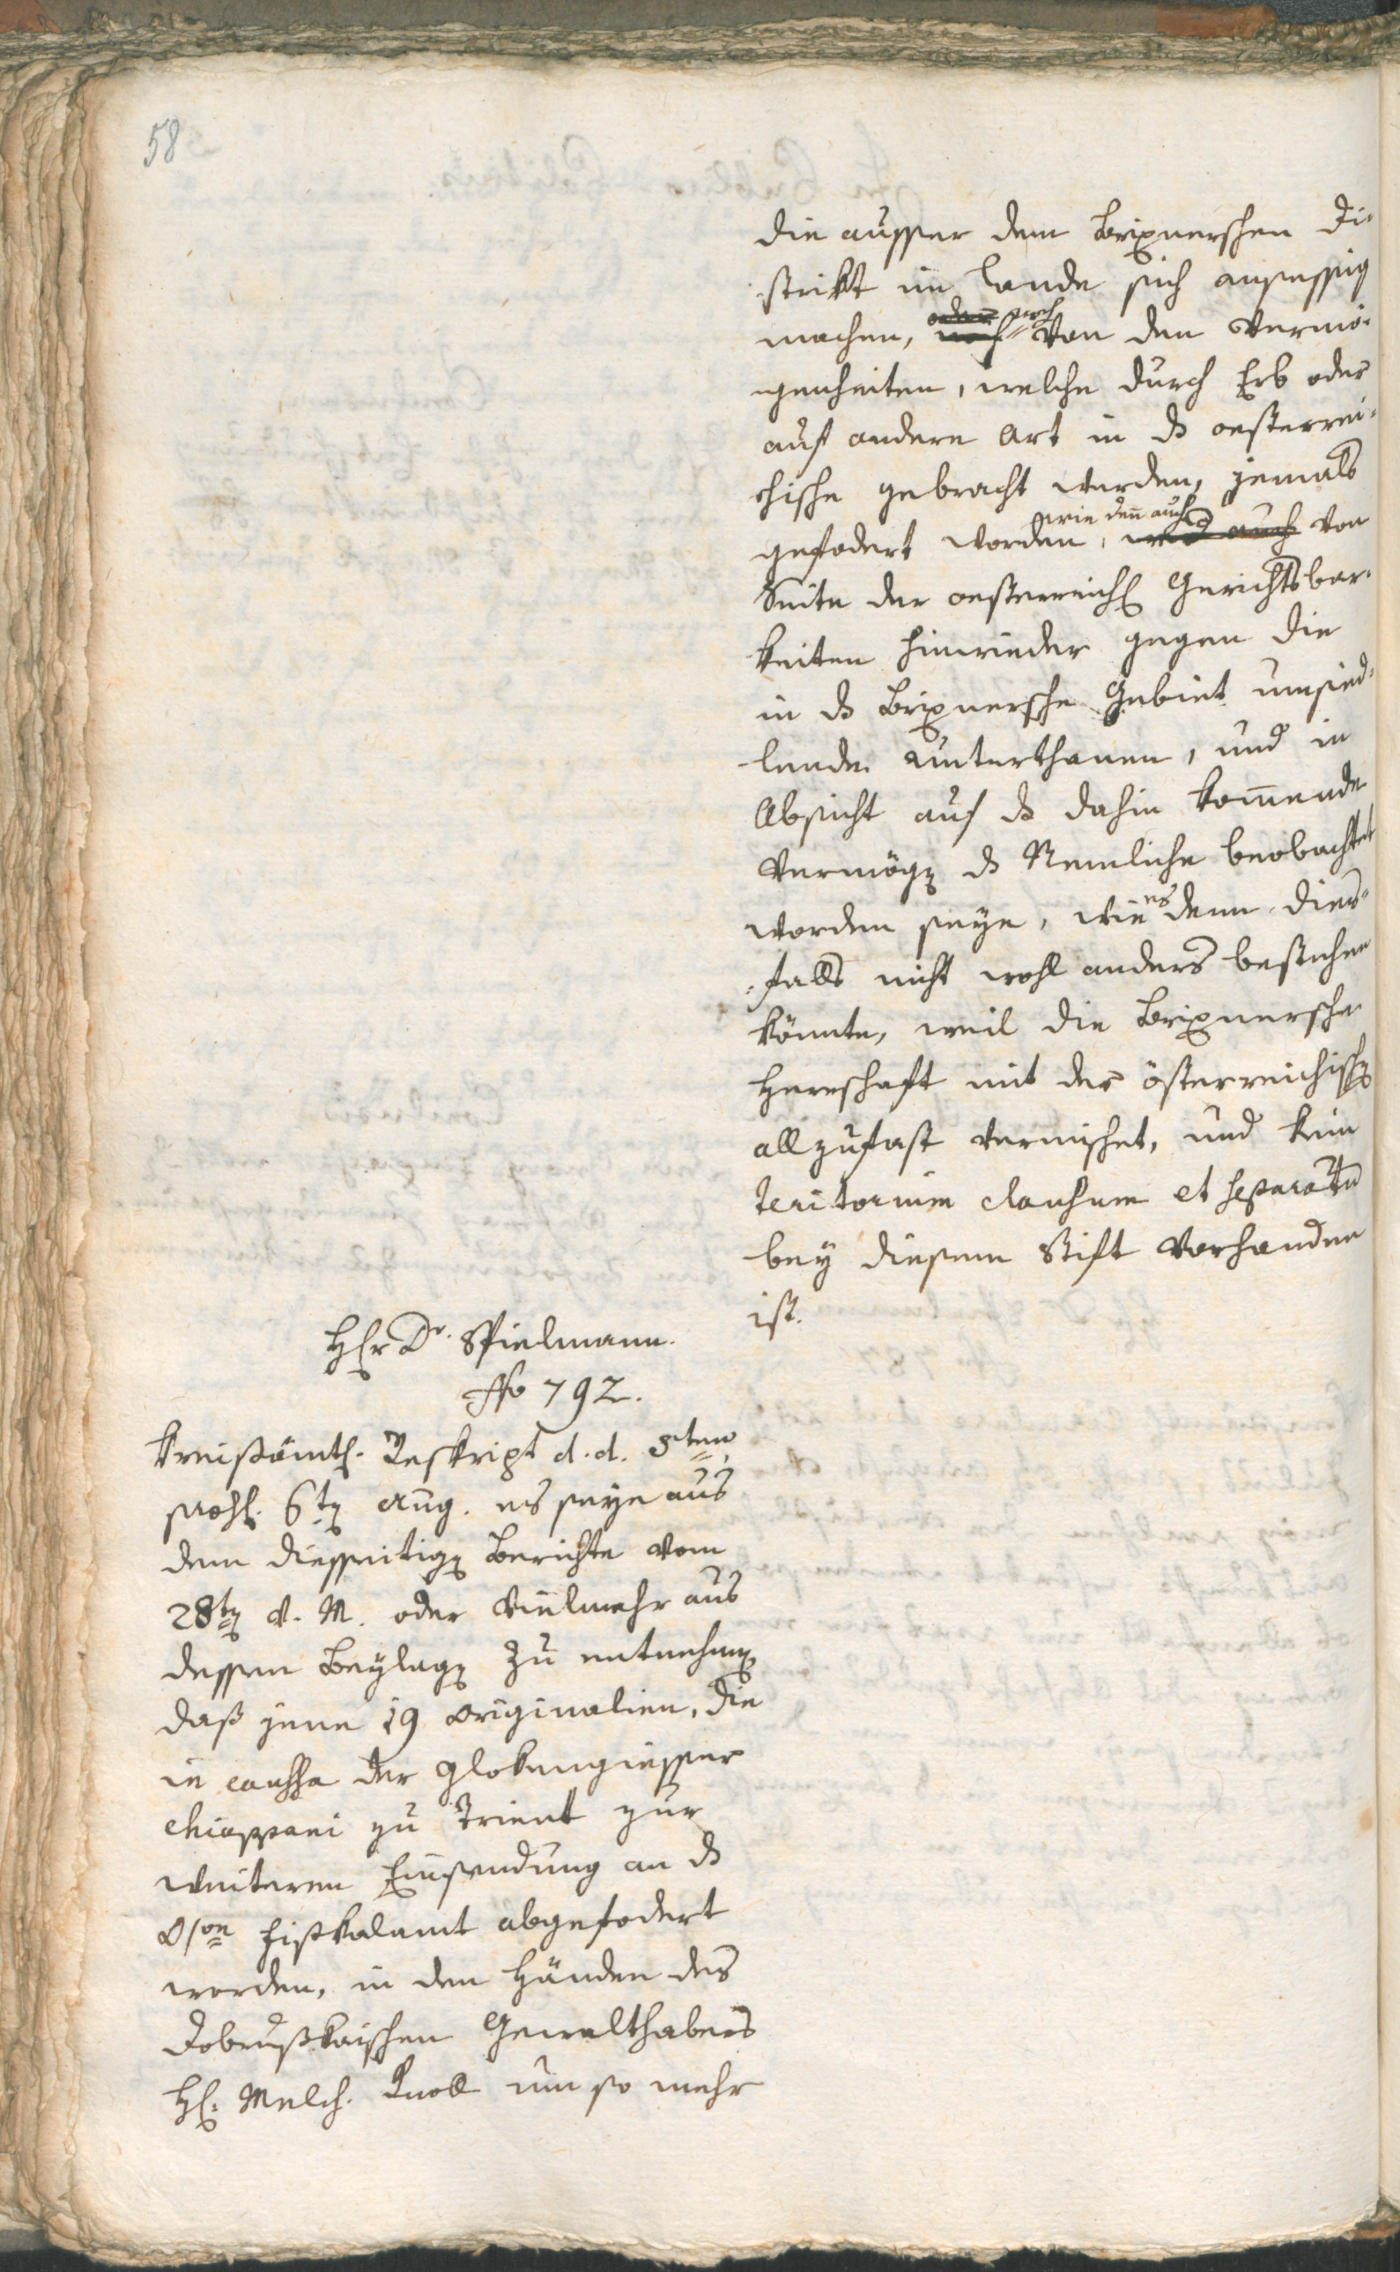 58
die ausser dem Brixnerschen Di-
strikt im Lande sich ansessig
machen, noch von den Vermö-
genheiten, welche durch Erb oder
auf andere Art in ds oesterrei-
chische gebracht werden, jemals
gefodert worden, wie den̄ auch von
Seite der oesterreich. Gerichtsbar-
keiten hinwieder gegen die
in ds Brixnersche Gebiet umsied-
lende Unterthanen, und in
Absicht auf ds dahin kom̄ende
Vermögen ds Nemliche beobachtet
worden seye, wie es denn dies-
falls nicht wohl anders bestehen
könnte, weil die Brixnersche
Herrschaft mit der österreichischen
allzufast vermischet, und kein
teritorium clausum et separatū
bey diesem Stift vorhanden
ist.
H. Dr. Spielmann.
No 792.
Kreisämtl. Reskript d. d. 5ten
praes. 6ten Aug. es seye aus
dem diesseitigen Berichte vom
28ten v. M. oder vielmehr aus
dessen Beylagen zu entnehmen
daß jene 19 Originalien, die
in caussa der Glokengiesser
Chiappani zu Trient zur
weiteren Einsendung an ds
Fiskalamt abgefodert
worden, in den Händen des
Dobruskaischen Gewalthabers
H. Melch. Knoll um so mehr